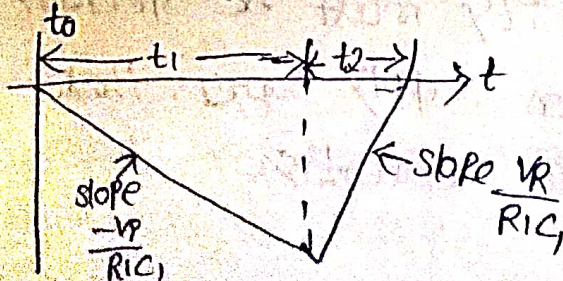 t0
t1
t2
t
slope
-VP
R1C1
slope VR
R1C1